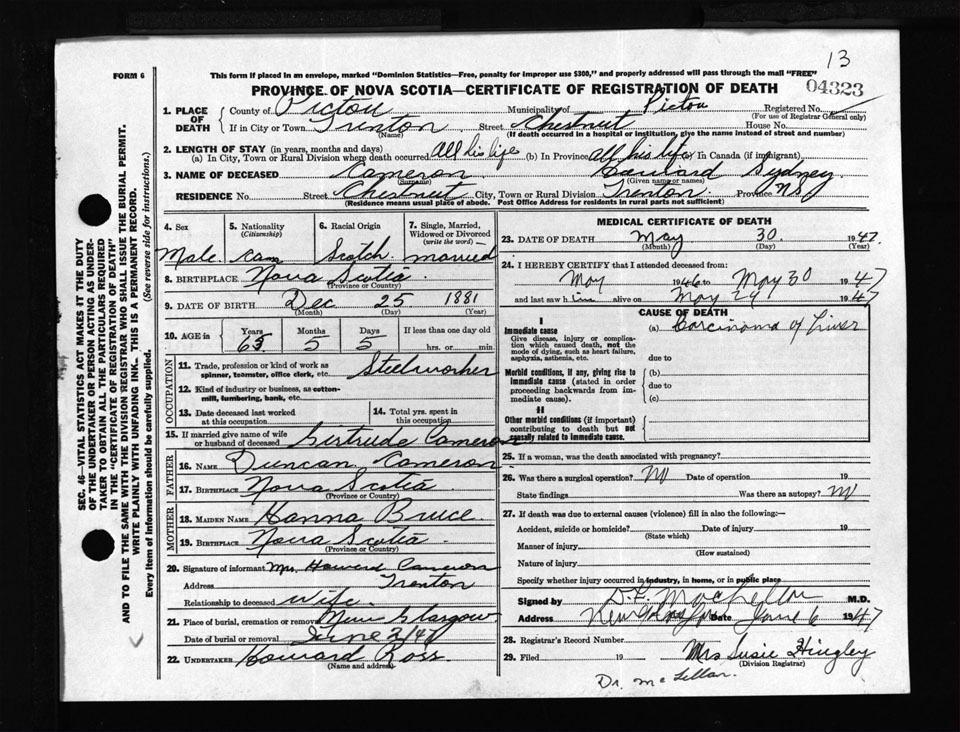 13
FORM 6
This form if placed in an envelope, marked "Dominion Statistics—Free, penalty for improper use $300," and properly addressed will pass through the mail "FREE"
PROVINCE OF NOVA SCOTIA—CERTIFICATE OF REGISTRATION OF DEATH
04323
1. PLACE OF DEATH
County of Pictou Municipality of Pictou Registered No.
(For use of Registrar General only)
If in City or Town Trenton Street Chestnut House No.
(Name) (If death occurred in a hospital or institution, give the name instead of street and number)
2. LENGTH OF STAY (in years, months and days)
(a) In City, Town or Rural Division where death occurred All his life (b) In Province All his life In Canada (if immigrant)
3. NAME OF DECEASED Cameron Sydney
(Surname) (Given name or names)
RESIDENCE No. Street Chestnut City, Town or Rural Division Trenton Province N.S.
(Residence means usual place of abode. Post Office Address for residents in rural parts not sufficient)
4. Sex
Male
5. Nationality
(Citizenship)
Can
6. Racial Origin
Scotch
7. Single, Married, Widowed or Divorced
(write the word)
married
8. BIRTHPLACE Nova Scotia
(Province or Country)
9. DATE OF BIRTH Dec 25 1881
(Month) (Day) (Year)
10. AGE in
Years Months Days If less than one day old
5 5 hrs. or min.
OCCUPATION
11. Trade, profession or kind of work as spinner, teamster, office clerk, etc. Steelworker
12. Kind of industry or business, as cotton-mill, lumbering, bank, etc.
13. Date deceased last worked at this occupation
14. Total yrs. spent in this occupation
15. If married give name of wife or husband of deceased Gertrude Cameron
FATHER
16. NAME Duncan Cameron
17. BIRTHPLACE Nova Scotia
(Province or Country)
MOTHER
18. MAIDEN NAME Hanna Bruce
19. BIRTHPLACE Nova Scotia
(Province or Country)
20. Signature of informant Mrs. Howard Cameron
Address Trenton
Relationship to deceased Wife
21. Place of burial, cremation or removal New Glasgow
Date of burial or removal June 2/47
22. UNDERTAKER Howard Ross
(Name and address)
MEDICAL CERTIFICATE OF DEATH
23. DATE OF DEATH May 30 1947
(Month) (Day) (Year)
24. I HEREBY CERTIFY that I attended deceased from:
May 1946 to May 30 1947
and last saw him alive on May 29 1947
CAUSE OF DEATH
I
Immediate cause
Give disease, injury or complication which caused death, not the mode of dying, such as heart failure, asphyxia, asthenia, etc.
(a) Carcinoma of Liver
due to
Morbid conditions, if any, giving rise to immediate cause (stated in order proceeding backwards from immediate cause).
(b)
due to
(c)
II
Other morbid conditions (if important) contributing to death but not causally related to immediate cause.
25. If a woman, was the death associated with pregnancy?
26. Was there a surgical operation? No Date of operation 19
State findings Was there an autopsy? No
27. If death was due to external causes (violence) fill in also the following:—
Accident, suicide or homicide? Date of injury 19
(State which)
Manner of injury
(How sustained)
Nature of injury
Specify whether injury occurred in industry, in home, or in public place
Signed by MacLellan M.D.
Address New Glasgow Date June 6 1947
28. Registrar's Record Number
29. Filed 19 Mrs Susie Hingley
(Division Registrar)
Dr. McLellan
SEC. 46—VITAL STATISTICS ACT MAKES IT THE DUTY
OF THE UNDERTAKER OR PERSON ACTING AS UNDER-
TAKER TO OBTAIN ALL THE PARTICULARS REQUIRED
IN THE "CERTIFICATE OF REGISTRATION OF DEATH"
AND TO FILE THE SAME WITH THE DIVISION REGISTRAR WHO SHALL ISSUE THE BURIAL PERMIT.
WRITE PLAINLY WITH UNFADING INK. THIS IS A PERMANENT RECORD.
Every item of information should be carefully supplied. (See reverse side for instructions.)